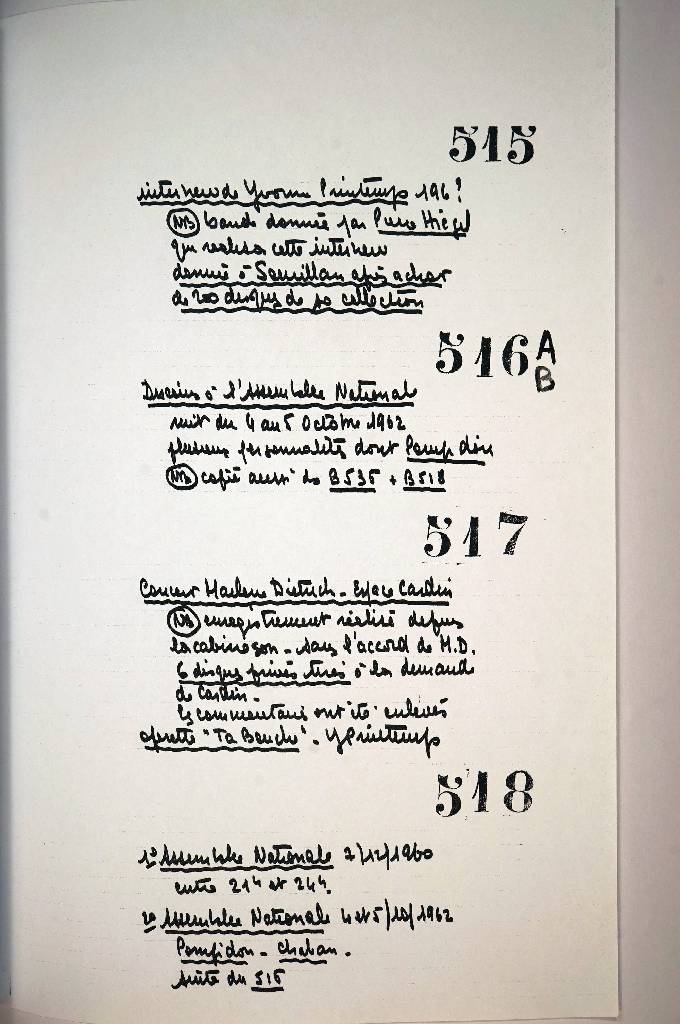 515
interview de Yvonne Printemps 196?
NB bande donnée par Pierre Hiégel
qui réalisa cette interview
donnée à Sevrillan après achat
de 200 disques de sa collection
516 A
B
Discours à l'Assemblée National
nuit du 4 au 5 Octobre 1962
plusieurs personnalités dont Pompidou
NB copié aussi B535 + B518
517
Concert Marlene Dietrich - Espace Cardin
NB enregistrement réalisé depuis
la cabine son - sans l'accord de M.D.
6 disques privés tirés à la demande
de Cardin -
les commentaires ont été enlevés
opérette "Ta Bouche" - Y Printemps
518
1º Assemblée Nationale 7/12/1960
entre 21h et 24h.
2º Assemblée Nationale 4 et 5/10/1962
Pompidou - Chaban.
suite du 516